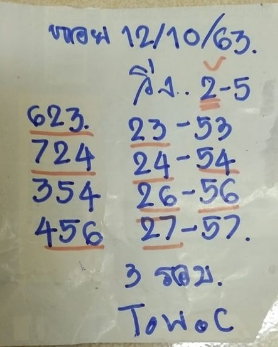 หวย 12/10/63.
วิ่ง.. 2-5
623. 23-53
724 24-54
354 26-56
456 27-57.
3 รอบ.